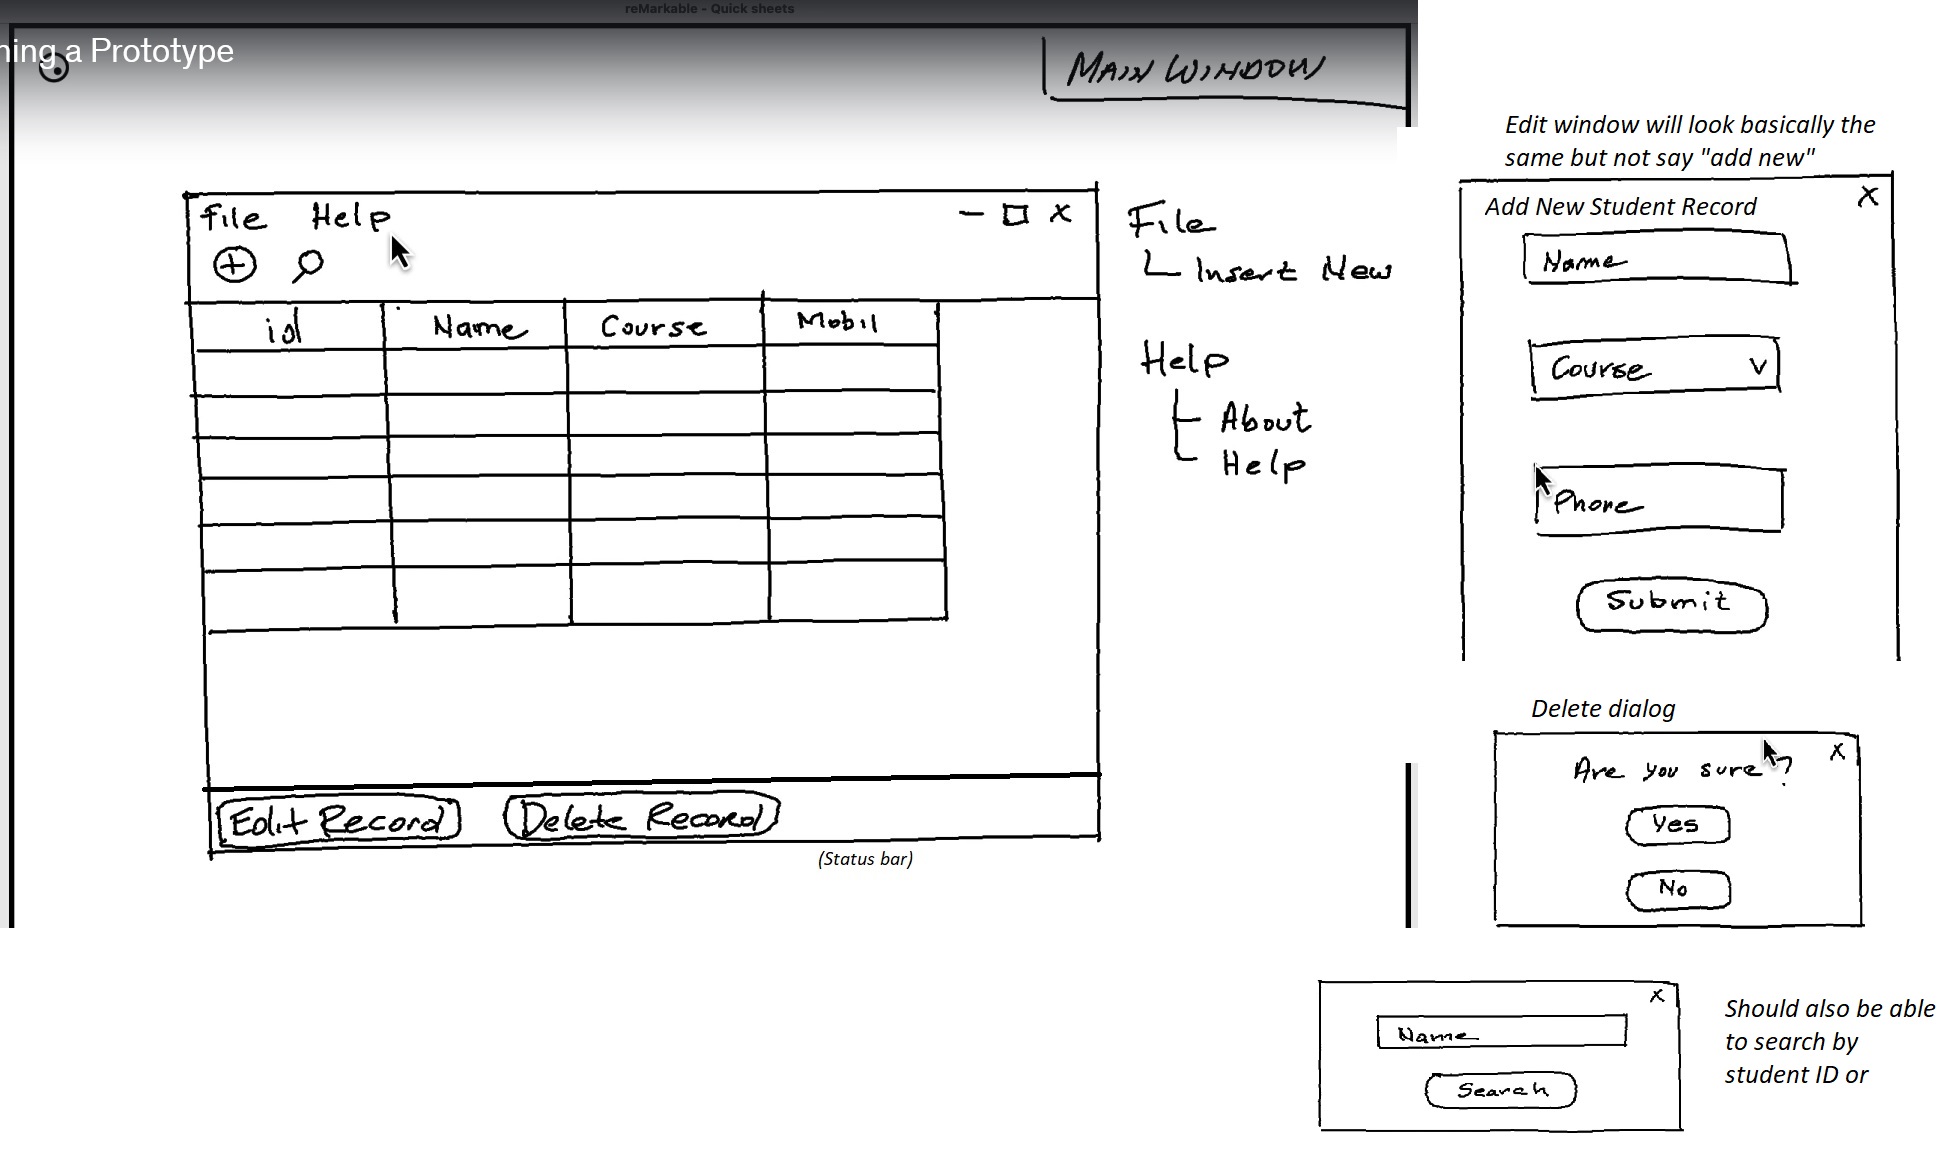 reMarkable - Quick sheets
ning a Prototype
MAIN WINDOW
File Help
x
id Name Course Mobil
Edit Record Delete Record
(Status bar)
File
Insert New
Help
About
Help
Edit window will look basically the
same but not say "add new"
Add New Student Record x
Name
Course v
Phone
Submit
Delete dialog
x
Are you sure ?
Yes
No
x
Name
Search
Should also be able
to search by
student ID or